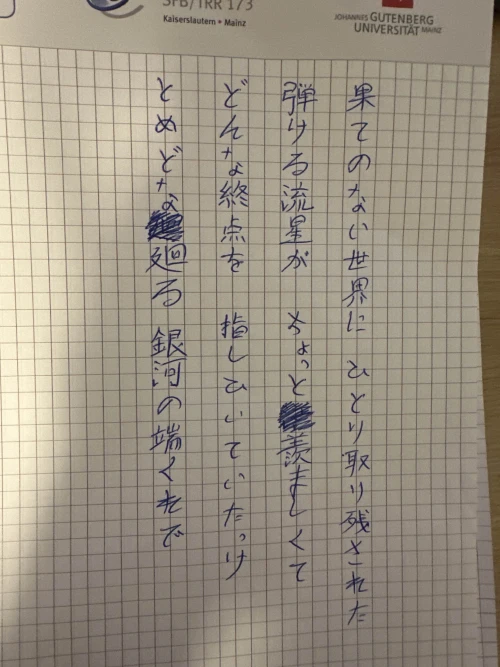 SFB/TRR 173
Kaiserslautern • Mainz
JOHANNES GUTENBERG
UNIVERSITÄT MAINZ
果てのない世界に ひとり取り残された
弾ける流星が ちょっと羨ましくて
どんな終点を 指しひいていたっけ
とめどな廻る 銀河の端くれで